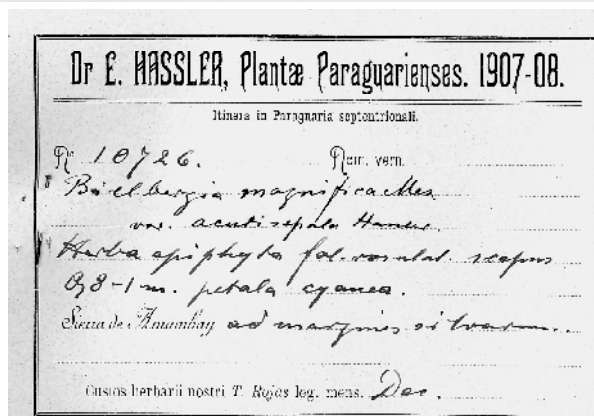 Dr E. HASSLER, Plantæ Paraguarienses. 1907-08.
Itinera in Paraguaria septentrionali.
No 10726. Nom. vern.
Billbergia magnifica Mez
var. acutisepala Hassler
Herba epiphyta fol. rosulat. scapus
0,8-1 m. petala cyanea.
Sierra de Amambay ad margines silvarum.
Custos herbarii nostri T. Rojas leg. mens. Dec.